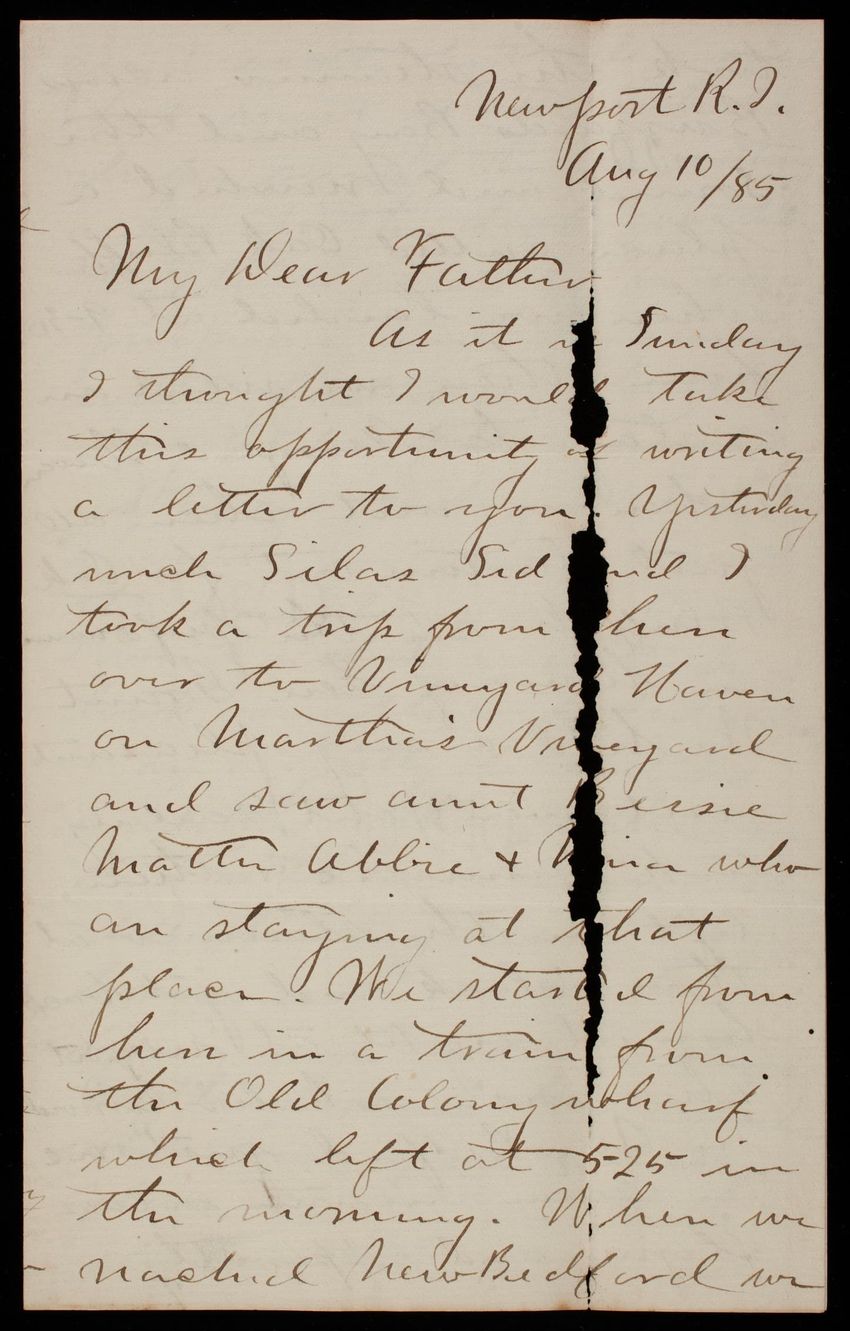 Newport R.I.
Aug 10/85
My Dear Father
As it is Sunday
I thought I would take
this opportunity of writing
a letter to you. Yesterday
uncle Silas Sid and I
took a trip from here
over to Vineyard Haven
on Martha's Vineyard
and saw aunt Bessie
Mattie Abbie + Nina who
are staying at that
place. We started from
here in a train from
the Old Colony wharf
which left at 525 in
the morning. When we
reached New Bedford we